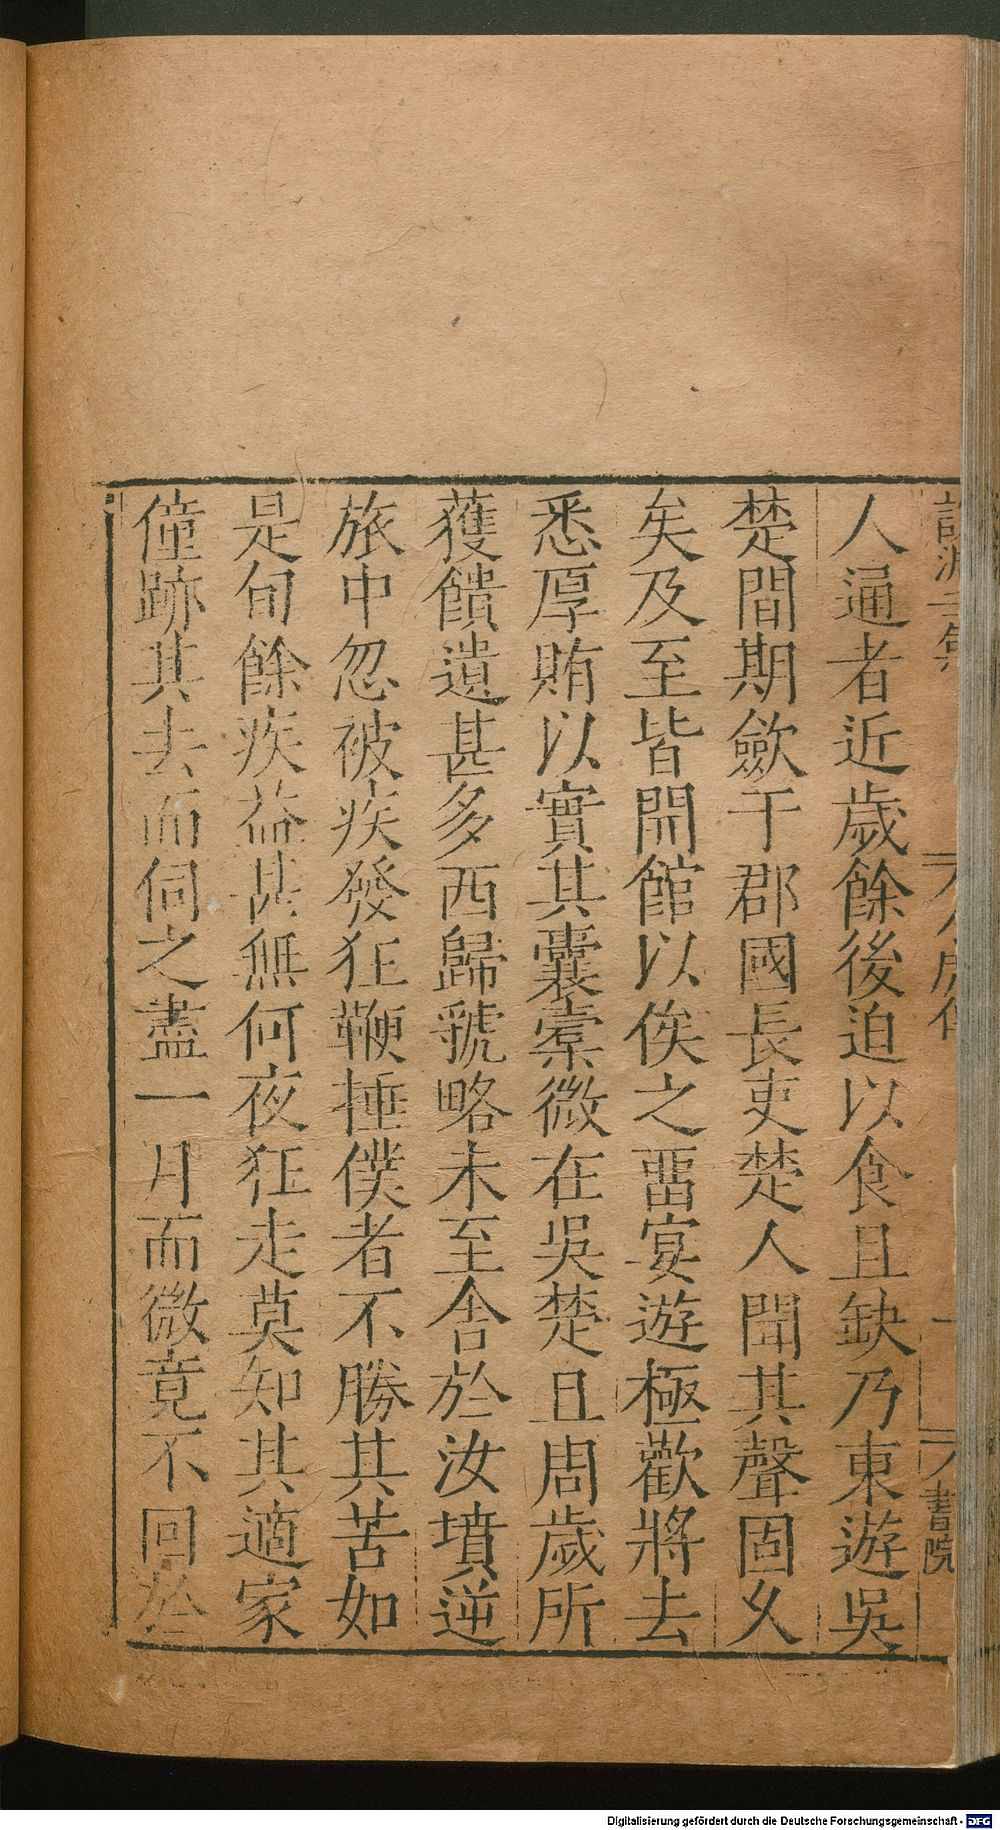 人通者近歲餘後迫以食且缺乃東遊吳
楚間期歛干郡國長吏楚人聞其聲固久
矣及至皆開館以俟之畱宴遊極歡將去
悉厚賄以實其囊橐微在吳楚且周歲所
獲饋遺甚多西歸虢略未至舍於汝墳逆
旅中忽被疾發狂鞭捶僕者不勝其苦如
是旬餘疾益甚無何夜狂走莫知其適家
僮跡其去而伺之盡一月而微竟不回於
書院
Digitalisierung gefördert durch die Deutsche Forschungsgemeinschaft - DFG